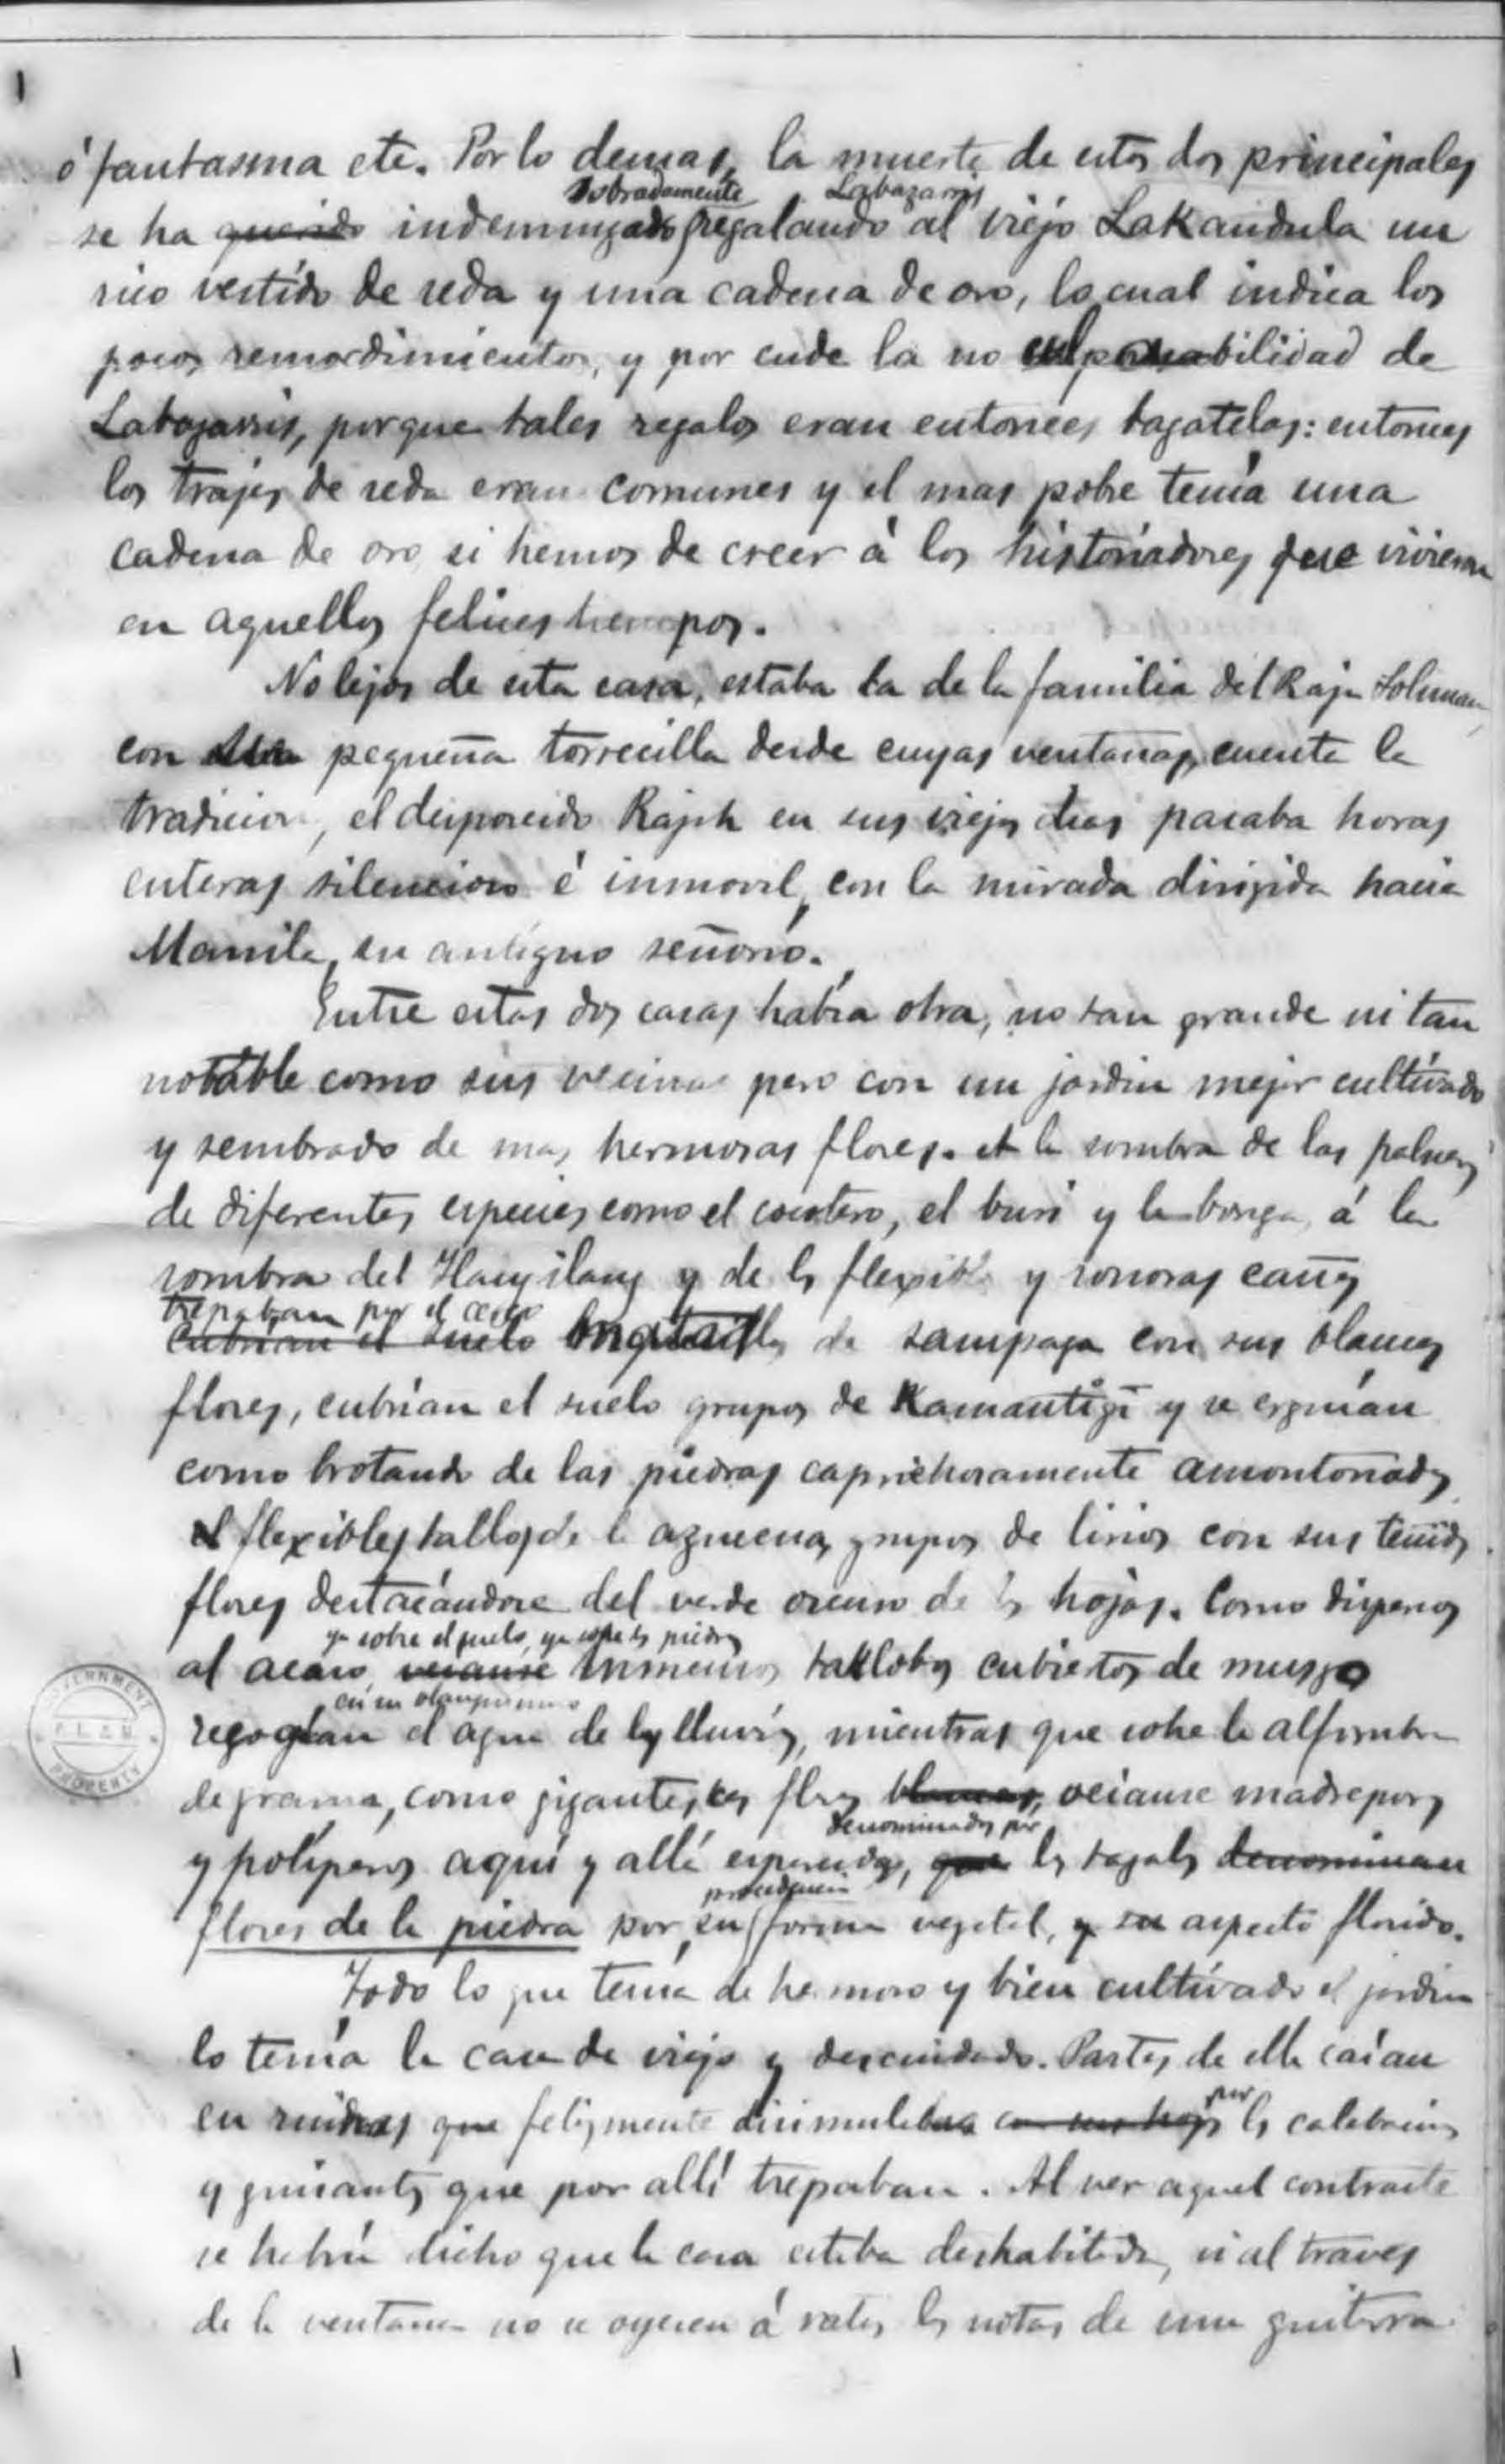 ó fantasma etc. Por lo demas, la muerte de estos dos principales
sobradamente Labazarris
se ha querido indemnizado regalando al viejo Lakandula un
rico vestido de seda y una cadena de oro, lo cual indica los
pocos remordimientos, y por ende la no culpabilidad de
Labazarris, porque tales regalos eran entonces bagatelas: entonces
los trajes de seda eran comunes y el mas pobre tenía una
cadena de oro si hemos de creer á los historiadores que vivieron
en aquellos felices tiempos.
No lejos de esta casa, estaba la de la familia del Raja Soliman
con su pequeña torrecilla desde cuyas ventanas, cuenta la
tradicion, el desposeido Rajah en sus viejos dias pasaba horas
enteras silencioso é inmovil, con la mirada dirigida hacia
Manila, su antiguo señorío.
Entre estas dos casas había otra, no tan grande ni tan
notable como sus vecinas pero con un jardin mejor cultivado
y sembrado de mas hermosas flores. A la sombra de las palmas
de diferentes especies como el cocotero, el buri y la bonga, á la
sombra del Ilang ilang y de las flexibles y sonoras cañas
trepaban por el cerco
cubrian el suelo de sampaga con sus blancas
flores, cubrían el suelo grupos de Kamantigi y se erguían
como brotando de las piedras caprichosamente amontonadas
flexibles tallos de la azucena, grupos de lirios con sus
flores destacándose del verde oscuro de las hojas. Como dispersos
ya sobre el suelo, ya sobre las piedras
al acaso, veíanse inmensos taklobos cubiertos de musgo
en su
recogían el agua de las lluvias, mientras que sobre la alfombra
de grama, como gigantescas flores blancas, veíanse madreporas
denominados por
y políperos aquí y allá esparcidos, que los tagalos denominan
procedencia
flores de la piedra por su forma vegetal, y su aspecto florido.
Todo lo que tenía de hermoso y bien cultivado el jardin
lo tenía la casa de viejo y descuidado. Partes de ella caían
por
en ruinas que felizmente disimulaban con sus hojas las calabacinas
y guisantes que por allí trepaban. Al ver aquel contraste
se habría dicho que la casa estaba deshabitada, si al traves
de la ventana no se oyesen á ratos las notas de una guitarra
GOVERNMENT
PROPERTY